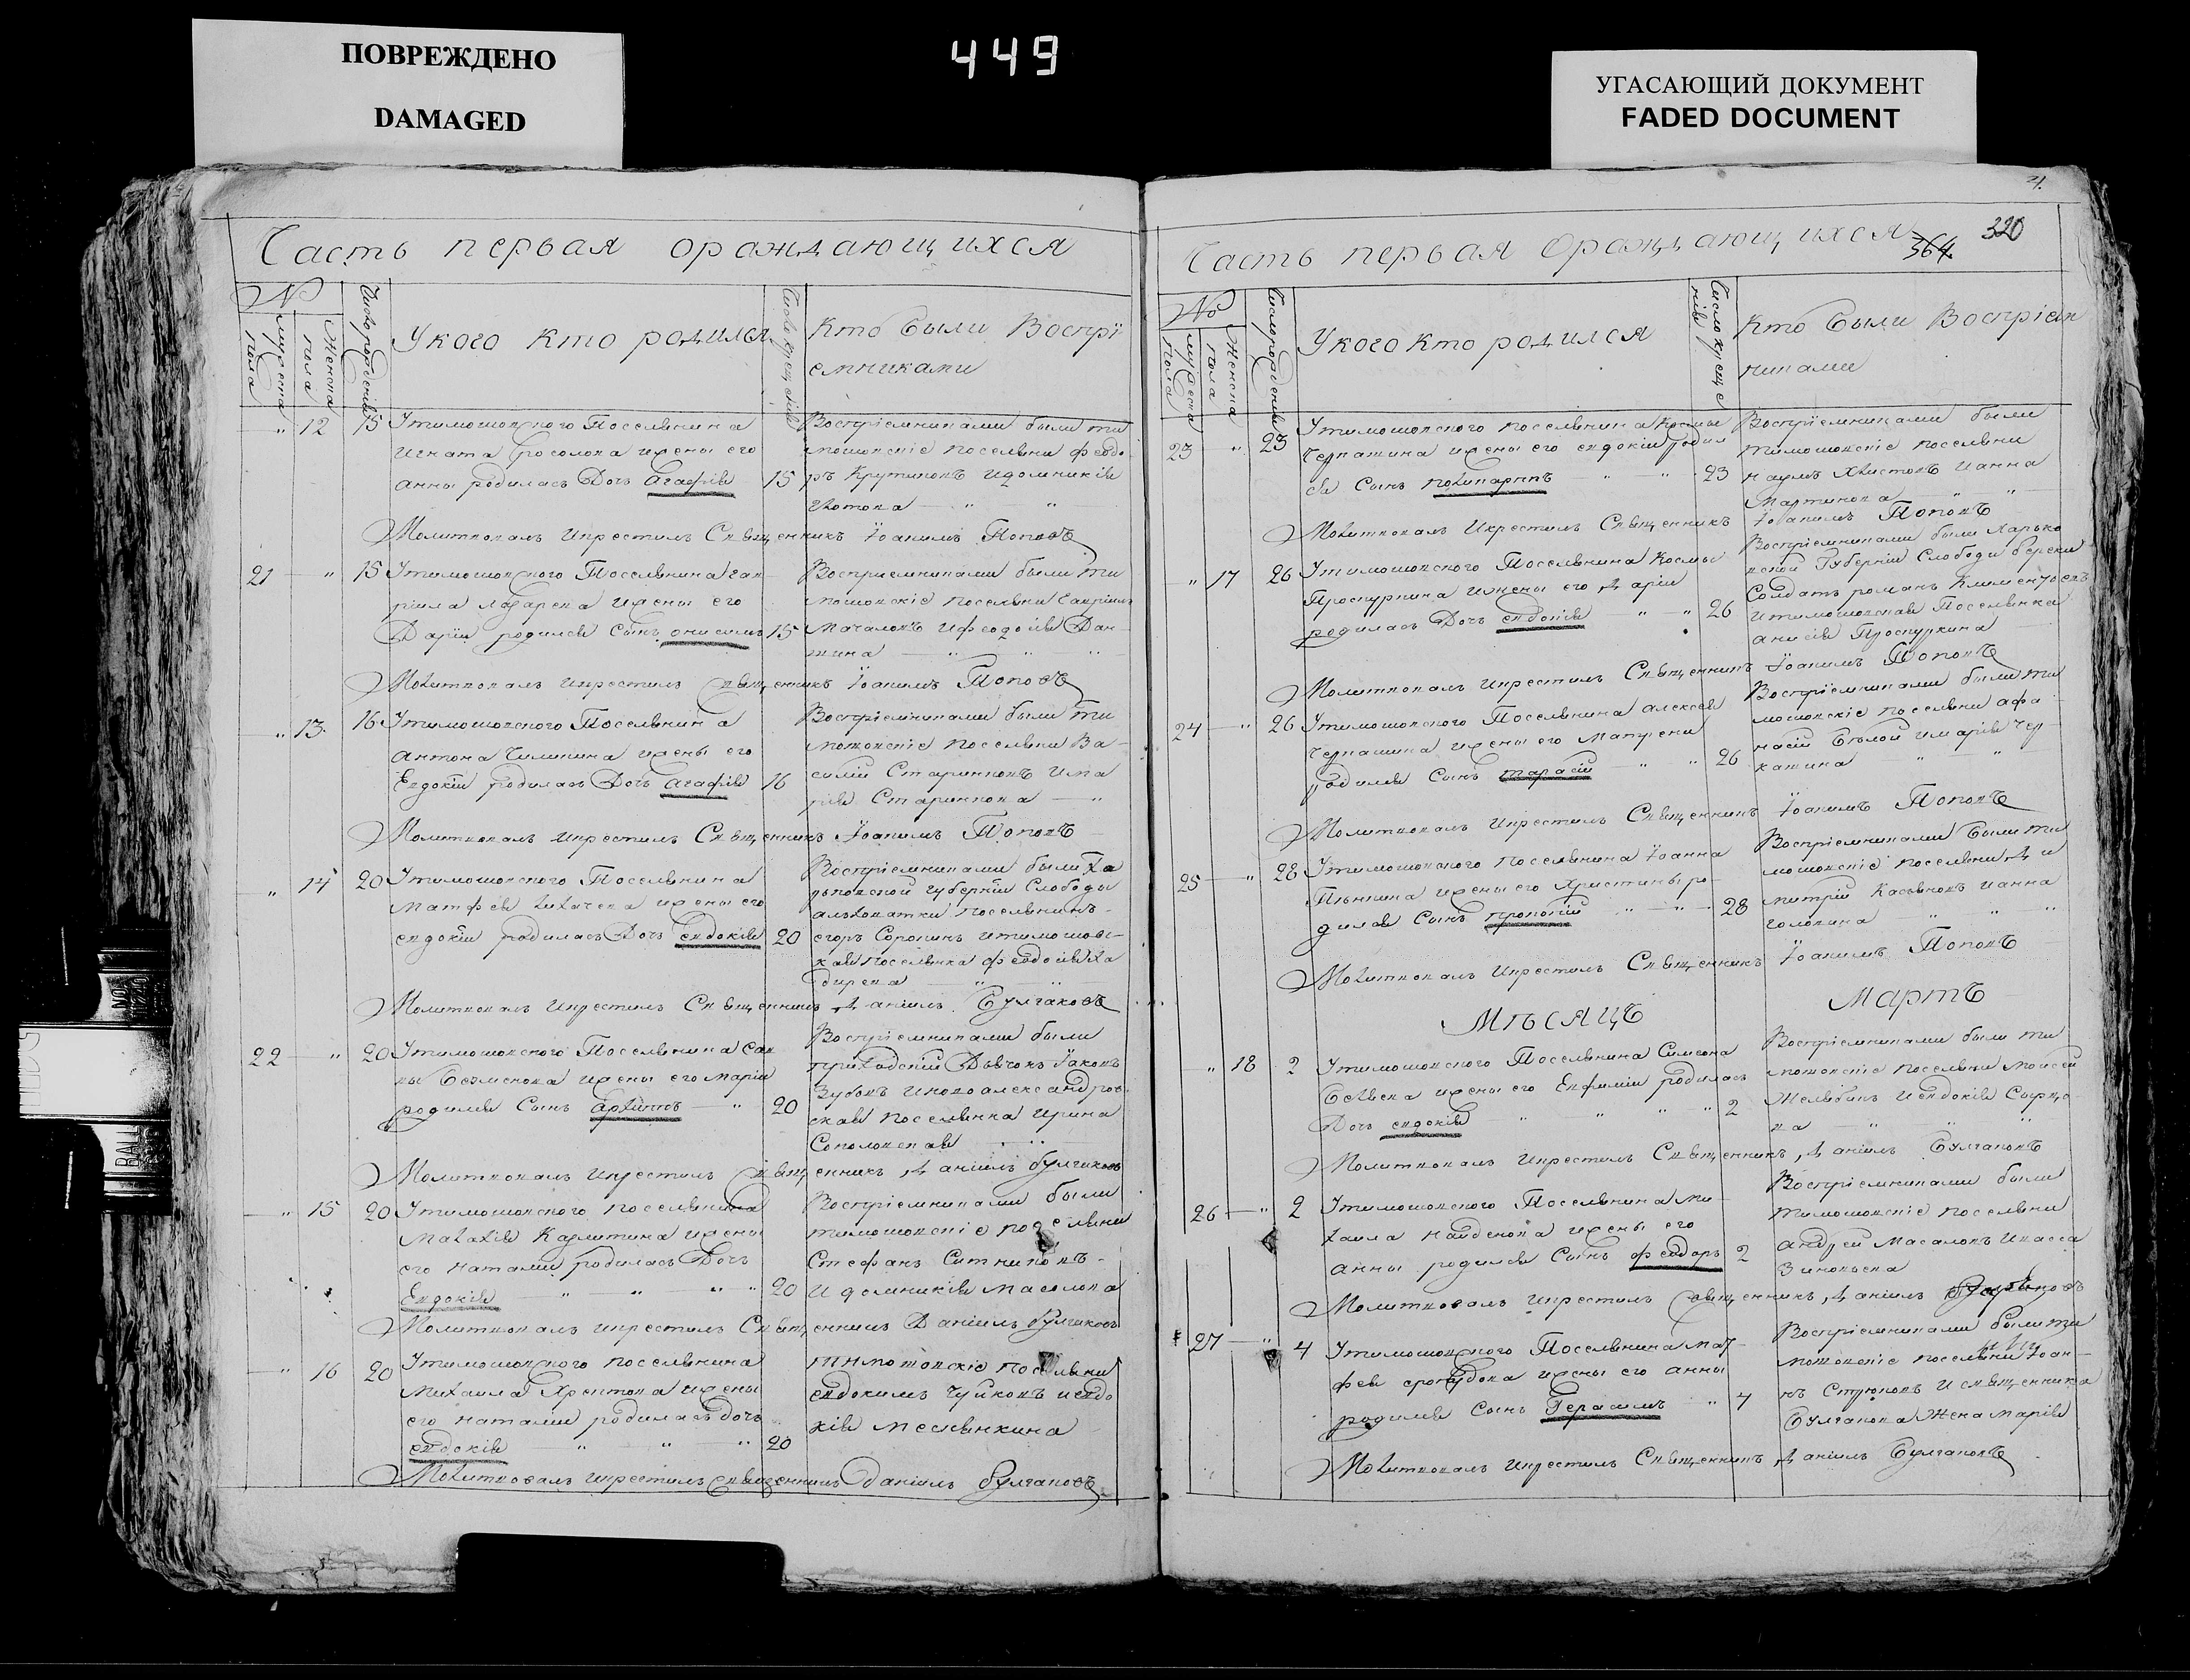 ПОВРЕЖДЕНО
DAMAGED
449
УГАСАЮЩИЙ ДОКУМЕНТ
FADED DOCUMENT
Часть первая ораждающихся
№
мужеска пола
Женска пола
Число рождения
Укого кто родился
Число крещенія
Кто были Воспрі
емниками
„ 12 15 Утимошовского Поселянина
Игната
анны родилась Дочь Агафія 15
Воспріемниками были ти
мошовскіе поселяни феодо
ръ Крутиковъ идомникія
Молитвовалъ икрестилъ Священникъ Іоакимъ Поповъ
21 „ 15 Утимошовского Поселянина гав
ріила Лазарева ижены его
Даріи родился сынъ онисимъ 15
Воспріемниками были ти
мошовскіе поселяни Гавріилъ
Мачаловъ ифеодосія Дан
Молитвовалъ икрестилъ Священникъ Іоакимъ Поповъ
„ 13 16 Утимошовского Поселянина
антона Чиликина ижены его
Евдокіи родилась Дочь Агафія 16
Воспріемниками были ти
мошовскіе поселяни Ва
силій Стариковъ има
рія Старикова
Молитвовалъ икрестилъ Священникъ Іоакимъ Поповъ
„ 14 20 Утимошовского Поселянина
Матфея Лихачева ижены его
евдокіи родилась Дочь евдокія 20
Воспріемниками были Ха
рьковской губерніи Слободы
поселянинъ
егоръ Сорокинъ итимошовс
кая поселянка феодосія Ла
зарева
Молитвовалъ икрестилъ Священникъ Даніилъ Булгаковъ
22 „ 20 Утимошовского Поселянина Сав
вы ижены его Маріи
родился Сынъ архиппъ 20
Воспріемниками были
приходскій Дьячокъ Іаковъ
Зубовъ иновоалександров
ская поселянка ирина
Соколовская
Молитвовалъ икрестилъ Священникъ Даніилъ булгаковъ
„ 15 20 Утимошовского поселянина
Малахія Калитина ижены
его наталіи родилась Дочь
Евдокія 20
Воспріемниками были
тимошовскіе поселяни
Стефанъ Ситниковъ
идомникія масолова
Молитвовалъ икрестилъ Священникъ Даніилъ булгаковъ
„ 16 20 Утимошовского поселянина
Михаила Хрентова ижены
его наталіи родилась дочь
евдокія 20
тимошовскіе поселяни
евдокимъ Чуйковъ иевдо
кія меснянкина
Молитвовалъ икрестилъ священникъ даніилъ булгаковъ
4.
Часть первая Ораждающихся
364
320
№
мужеска пола
Женска пола
Число рожденія
Укого кто родился
Число креще
нія
Кто были Воспріем
никами
23 „ 23 Утимошовского поселянина Космы
Черкашина ижены его евдокіи родил
ся Сынъ поликарпъ 23
Воспріемниками были
тимошовскіе поселяни
наумъ Хлистовъ ианна
Мартинова
Молитвовалъ Икрестилъ Священникъ Іоакимъ Поповъ
„ 17 26 Утимошовского Поселянина Космы
Проскурнина ижены его Даріи
родилась Дочь евдокія 26
Воспріемниками были Харько
вской Губерніи Слободи береки
Солдатъ романъ Климентьевъ
итимошовская Поселянка
анисія Проскурнина
Молитвовалъ икрестилъ Священникъ Іоакимъ Поповъ
24 „ 26 Утимошовского Поселянина алексея
Черкашина ижены его Матрены
родился Сынъ тарасій 26
Воспріемниками были ти
мошовскіе поселяни афа
насій Бѣлой имарія Чер
кашина
Молитвовалъ икрестилъ Священникъ Іоакимъ Поповъ
25 „ 28 Утимошовского поселянина Іоанна
Пьянина ижены его Христины ро
дился Сынъ прокопій 28
Воспріемниками были ти
мошовскіе поселяни Ди
митрій Касьяновъ ианна
головина
Молитвовалъ икрестилъ Священникъ Іоакимъ Поповъ
Мѣсяцъ Мартъ
„ 18 2 Утимошовского Поселянина Симеона
ижены его Евфиміи родилась
Дочь евдокія 2
Воспріемниками были ти
мошовскіе поселяни Моисей
Желябинъ иевдокія
Молитвовалъ икрестилъ Священникъ Даніилъ Булгаковъ
26 „ 2 Утимошовского Поселянина ми
хаила найденова ижены его
анны родился Сынъ феодоръ 2
Воспріемниками были
тимошовскіе поселяни
андрей Масаловъ ивасса
Зиновьева
Молитвовалъ икрестилъ Священникъ Даніилъ Булгаковъ
27 „ 4 Утимошовского Поселянина мат
фея ижены его анны
родился Сынъ Герасимъ 4
Воспріемниками были ти
мошовскіе поселяни Іоан
нъ Стрюковъ исвященника
Булгакова Жена Марія
Молитвовалъ икрестилъ Священникъ Даніилъ Булгаковъ